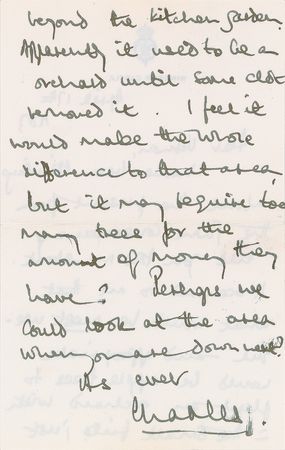 beyond the kitchen garden.
Apparently it used to be an
orchard until some clot
removed it. I feel it
would make the whole
difference to that area
but it may require too
many trees for the
amount of money they
have? Perhaps we
could look at the area
when you are down next?
As ever
Charles.